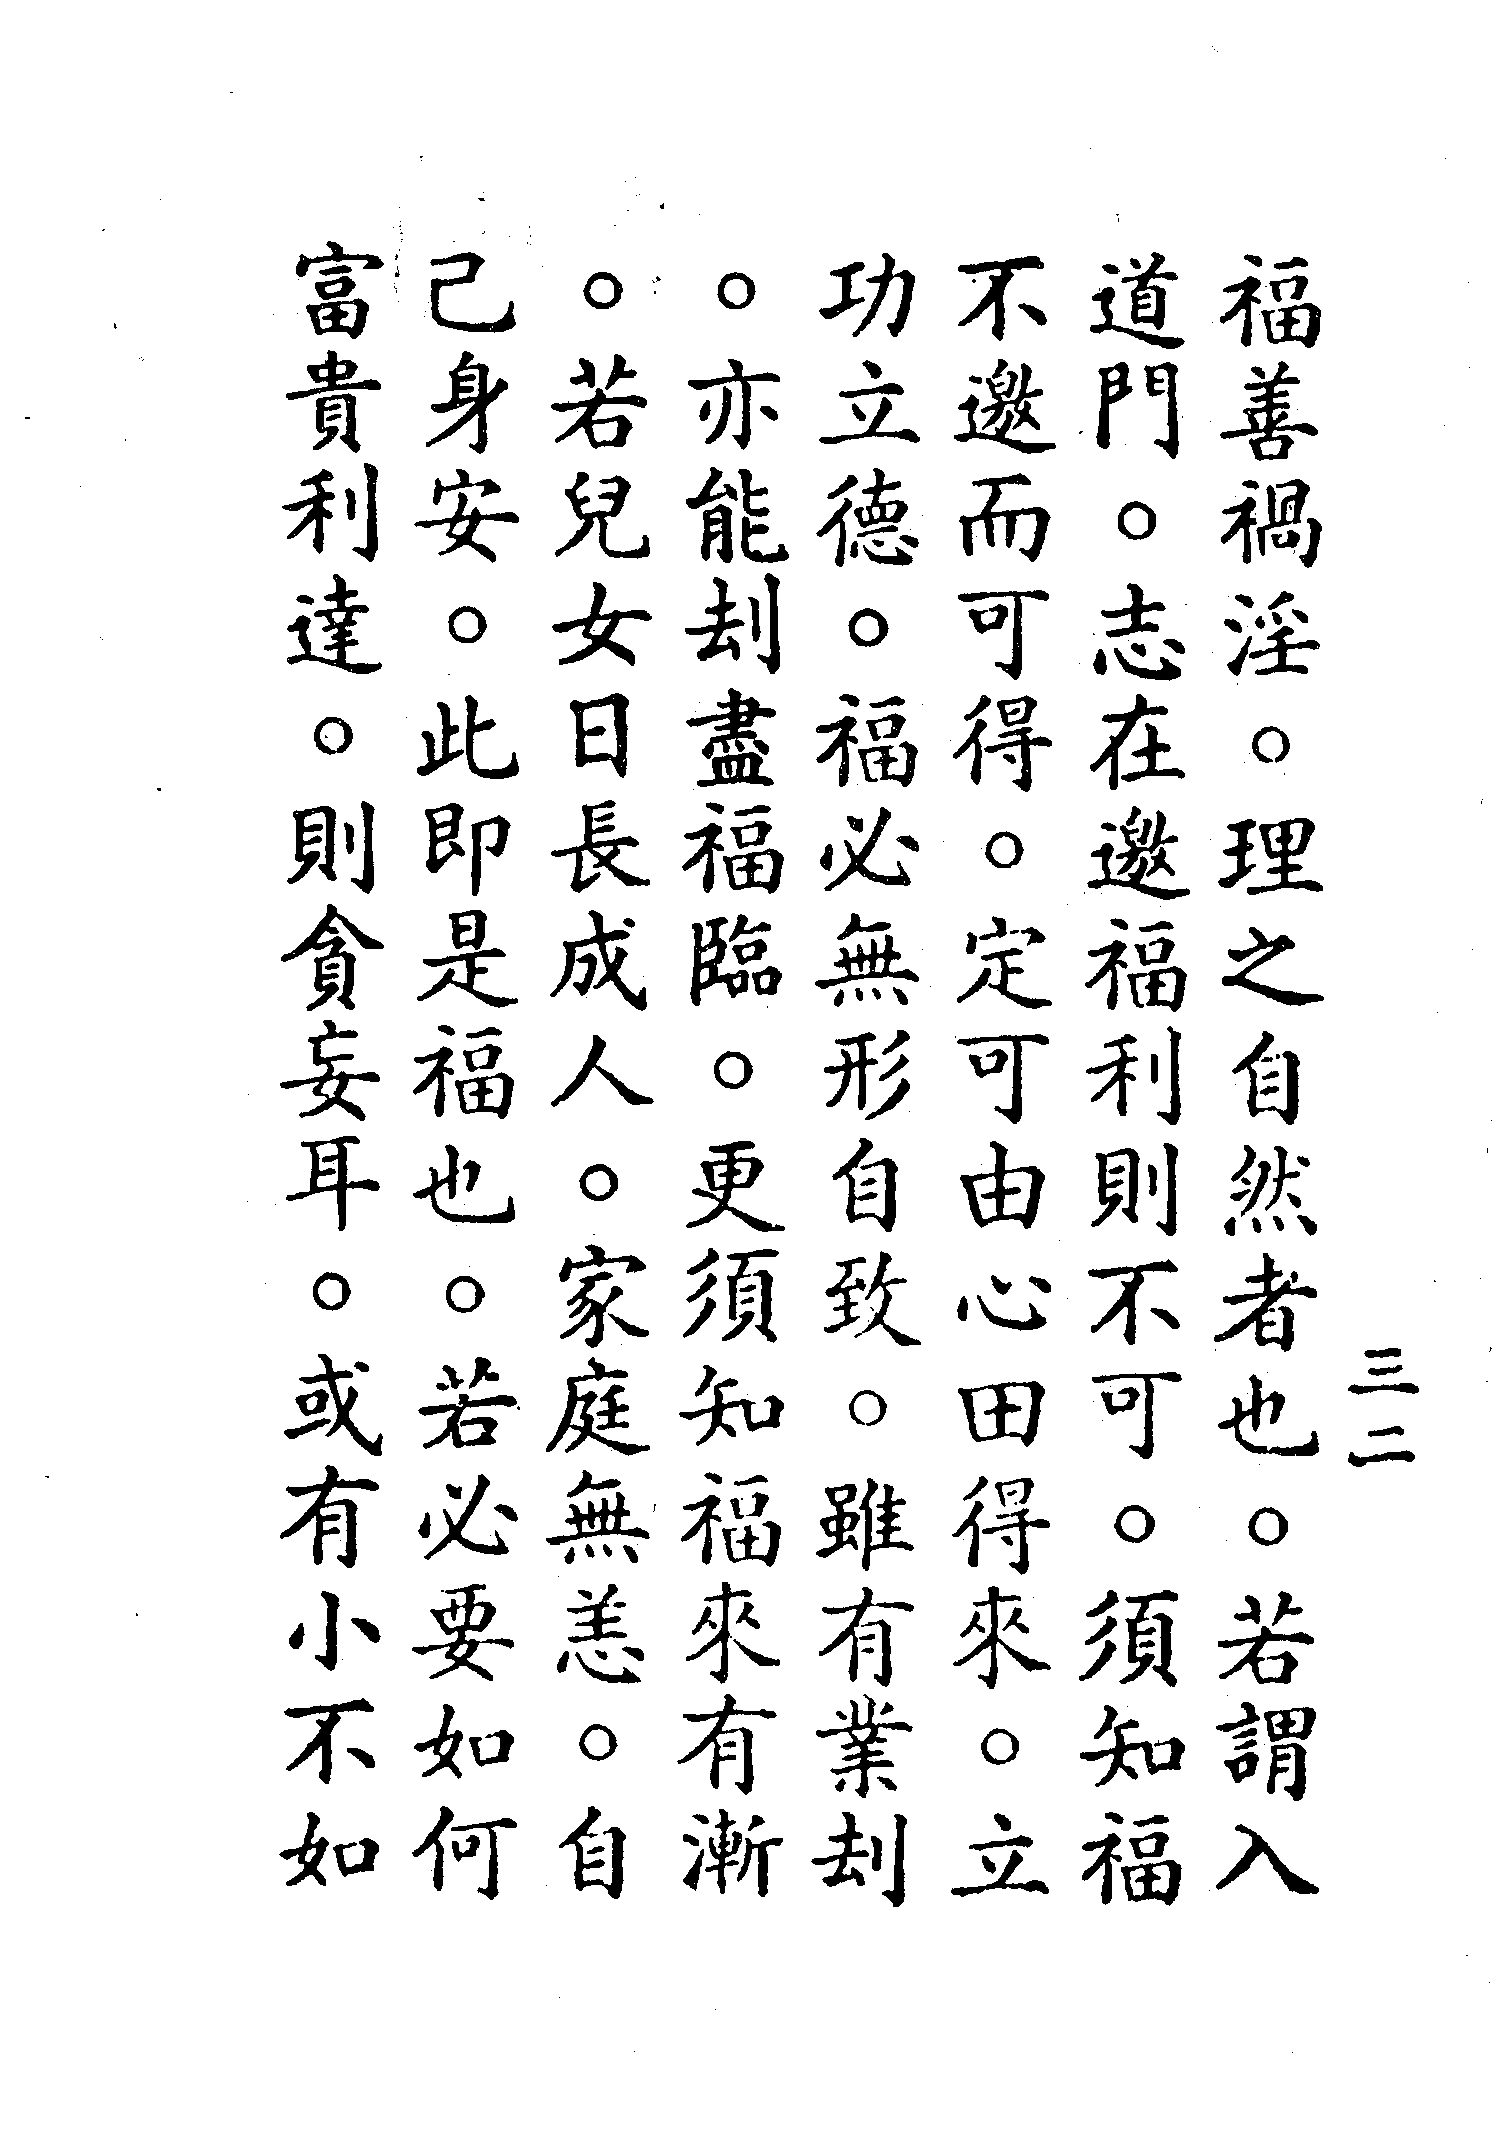 三二
福善禍淫。理之自然者也。若謂入
道門。志在邀福利則不可。須知福
不邀而可得。定可由心田得來。立
功立德。福必無形自致。雖有業刦
。亦能刦盡福臨。更須知福來有漸
。若兒女日長成人。家庭無恙。自
己身安。此即是福也。若必要如何
富貴利達。則貪妄耳。或有小不如